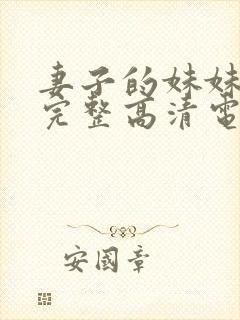 妻子的妹妹
完整高清電
安國章